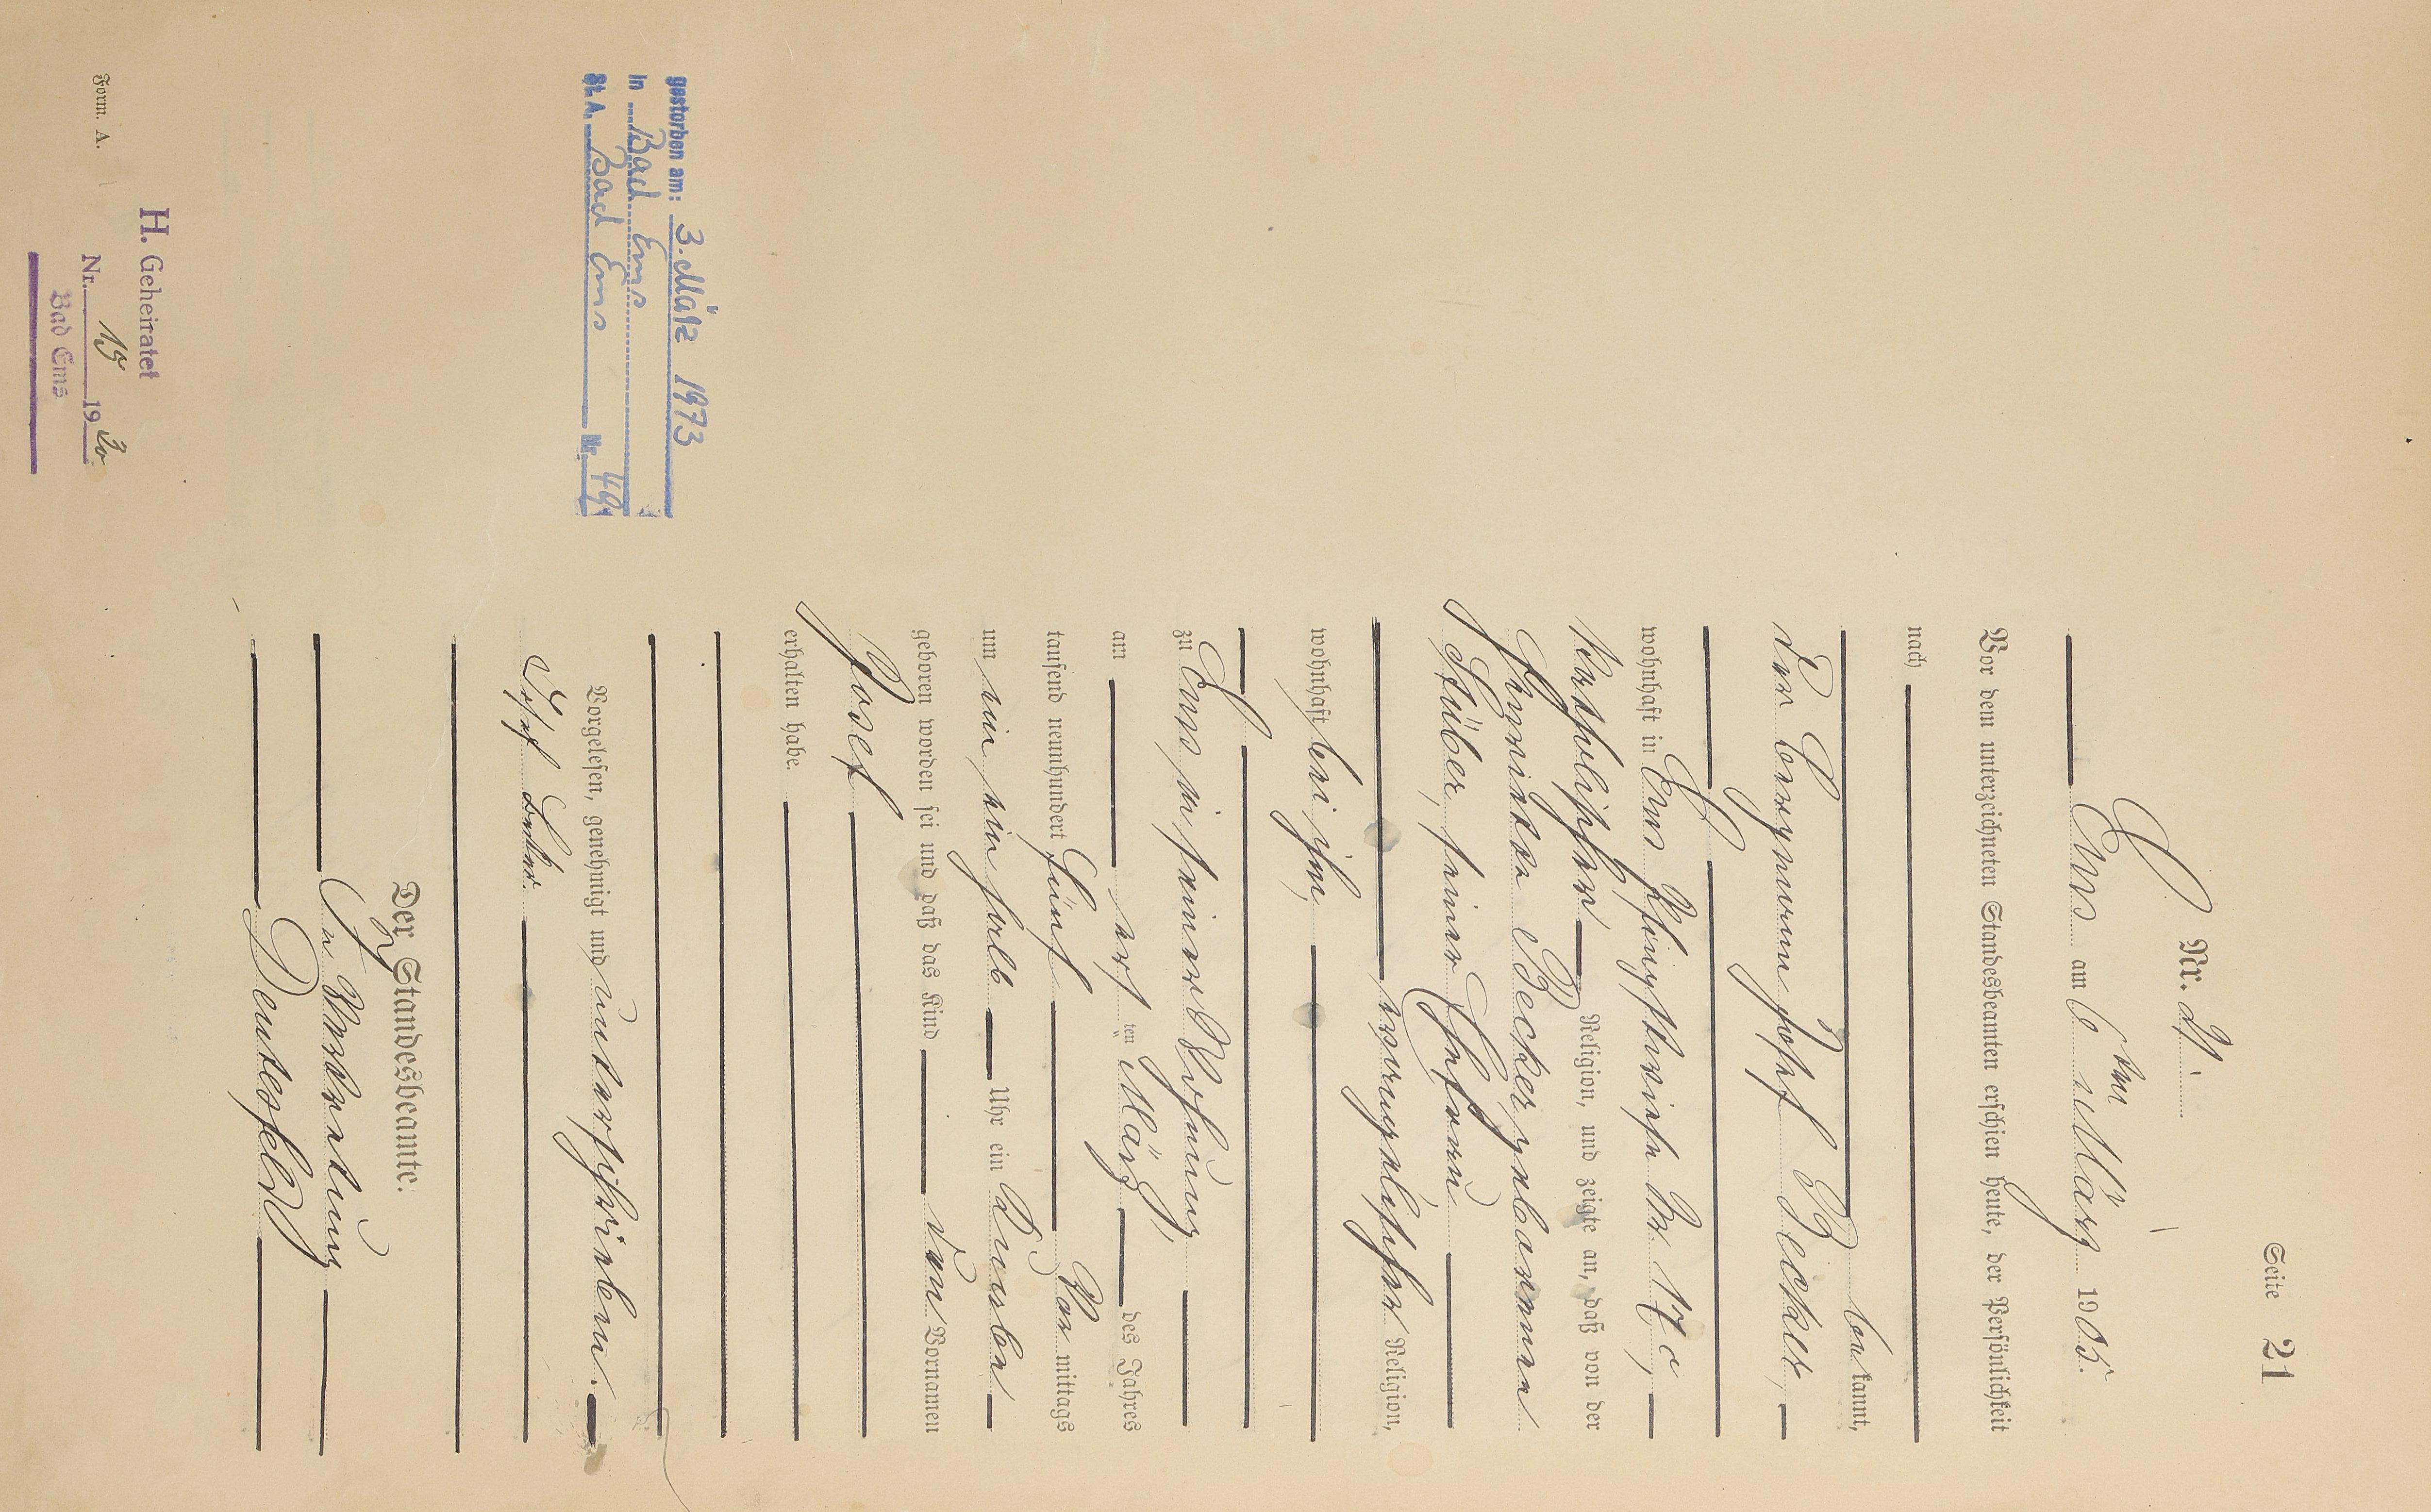 Seite 21
Nr. 21.
Ems am 6ten März 1905.
Vor dem unterzeichneten Standesbeamten erschien heute, der Persönlichkeit
nach
bekannt,
der Bergmann Josef Becker,
wohnhaft in Ems Pfingstwiese Nr. 17c,
katholischer Religion, und zeigte an, daß von der
Becker, geborenen
Stüber, seiner Ehefrau
evangelischer Religion,
wohnhaft bei ihm,
zu Ems in seiner Wohnung,
am ersten März des Jahres
tausend neunhundert fünf Vormittags
um ein ein halb Uhr ein Knabe
geboren worden sei und daß das Kind den Vornamen
Josef
erhalten habe.
Vorgelesen, genehmigt und unterschrieben.
Josef Becker
Der Standesbeamte.
In Vertretung
Deutesfeld
gestorben am: 3. März 1973
in Bad Ems
St. A. Bad Ems Nr. 49
H. Geheiratet
Nr. 15 1930
Bad Ems
Form. A.